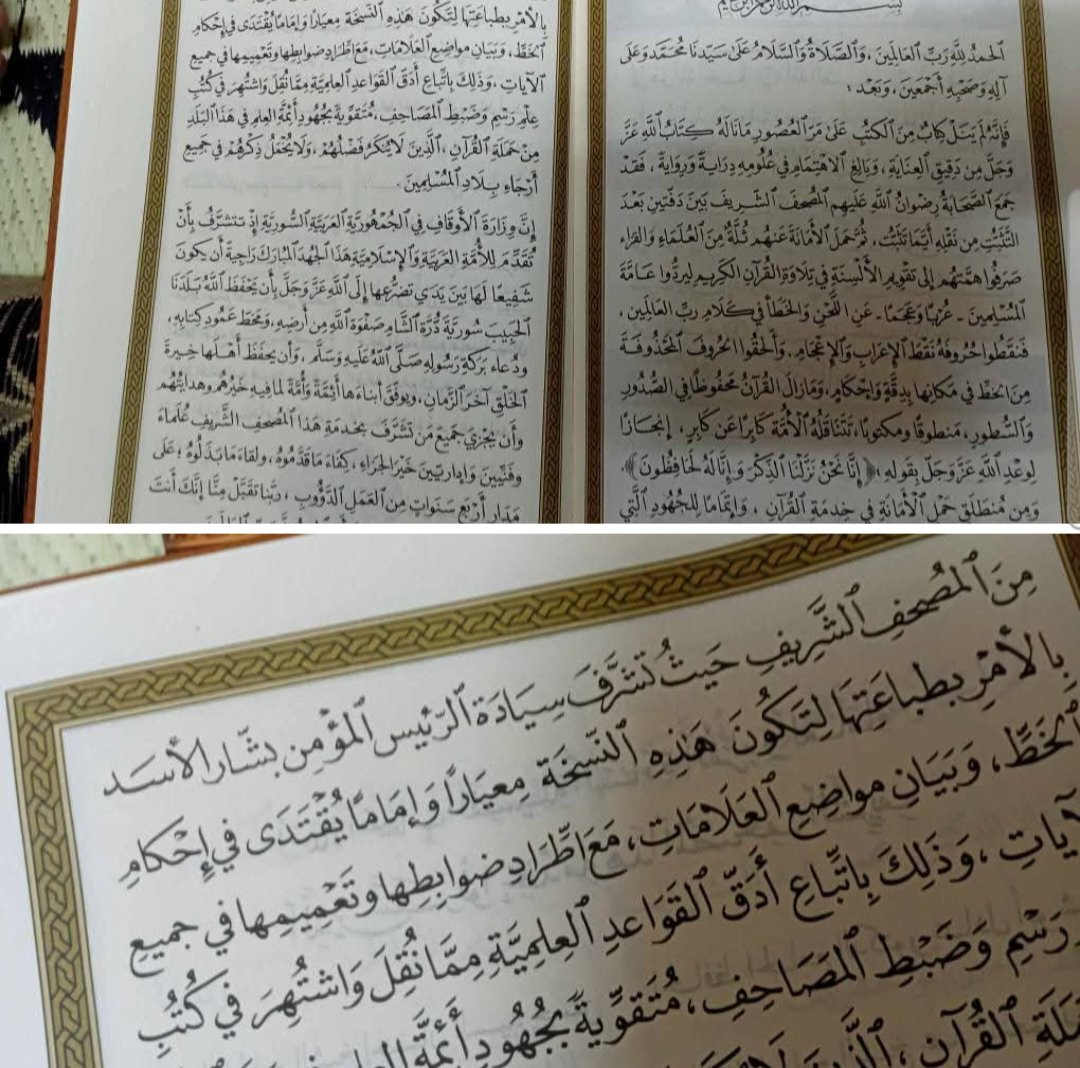 بِسْمِ اللَّهِ الرَّحْمَٰنِ الرَّحِيمِ
الحمدُ لِلَّهِ رَبِّ العَالَمِينَ، وَالصَّلَاةُ وَالسَّلَامُ عَلَىٰ سَيِّدِنَا مُحَمَّدٍ وَعَلَى
آلِهِ وَصَحْبِهِ أَجْمَعِينَ، وَبَعْدُ :
فَإِنَّهُ لَمْ يَنَلْ كِتَابٌ مِنَ الكُتُبِ عَلَىٰ مَرِّ العُصُورِ مَا نَالَهُ كِتَابُ اللَّهِ عَزَّ
وَجَلَّ مِنْ دَقِيقِ العِنَايَةِ، وَبَالِغِ الاهْتِمَامِ فِي عُلُومِهِ دِرَايَةً وَرِوَايَةً، فَقَدْ
جَمَعَ الصَّحَابَةُ رِضْوَانُ اللَّهِ عَلَيهِم المُصْحَفَ الشَّرِيفَ بَيْنَ دَفَّتَينِ بَعْدَ
التَّثَبُّتِ مِن نَقْلِهِ أَيَّمَا تَثَبُّت، ثُمَّ حَمَلَ الأَمَانَةَ عَنهُم ثُلَّةٌ مِنَ العُلَمَاءِ وَالقُرَّاءِ
صَرَفُوا هِمَّتَهُم إِلى تَقْوِيمِ الأَلْسِنَةِ فِي تِلَاوَةِ القُرآنِ الكَرِيمِ لِيَرُدُّوا عَامَّةَ
المُسْلِمِينَ - عُرْبًا وَعَجَمًا - عَنِ اللَّحْنِ وَالخَطَأِ فِي كَلَامِ رَبِّ العَالَمِينَ،
فَنَقَطُوا حُرُوفَهُ نَقْطَ الإِعْرَابِ وَالإِعْجَامِ، وَأَلْحَقُوا الحُرُوفَ المَحْذُوفَةَ
مِنَ الخَطِّ فِي مَكَانِهَا بِدِقَّةٍ وَإِحْكَامٍ، وَمَا زَالَ القُرْآنُ مَحْفُوظًا فِي الصُّدُورِ
وَالسُّطُورِ، مَنطُوقًا وَمَكتوبًا، تَتَنَاقَلُهُ الأُمَّةُ كَابِرًا عَن كَابِرٍ، إِنجَازًا
لِوَعدِ اللَّهِ عَزَّ وَجَلَّ بِقَولِهِ: ﴿إِنَّا نَحْنُ نَزَّلْنَا الذِّكْرَ وَإِنَّا لَهُ لَحَافِظُونَ﴾.
وَمِن مُنطَلَقِ حَمْلِ الأَمَانَةِ فِي خِدمَةِ القُرآنِ، وَإِتمَامًا لِلجُهُودِ الَّتِي
بِالأَمْرِ بِطِبَاعَتِهَا لِتَكُونَ هَذِهِ النُّسْخَةُ مِعيَارًا وَإِمَامًا يُقْتَدَى فِي إِحْكَامِ
الخَطِّ، وَبَيَانِ مَواضِعِ العَلَامَاتِ، مَعَ اطِّرَادِ ضَوابِطِها وتَعْمِيمِها في جميعِ
الآيَاتِ، وَذَلِكَ بِاتِّباعِ أَدَقِّ القَوَاعِدِ العِلمِيَّةِ مِمَّا نُقِلَ وَاشتُهِرَ فِي كُتُبِ
عِلْمِ رَسْمِ وَضَبْطِ المَصَاحِفِ، مُتَقَوِّيَةً بِجُهُودِ أَئِمَّةِ العِلمِ فِي هَذَا البَلَدِ
مِنْ حَمَلَةِ القُرآنِ، الَّذِينَ لَا يُنْكَرُ فَضْلُهُمْ، وَلَا يُجْمَلُ ذِكْرُهُمْ فِي جَمِيعِ
أَرْجَاءِ بِلَادِ المُسْلِمِينَ.
إِنَّ وِزَارَةَ الأَوقَافِ فِي الجُمْهُورِيَّةِ العَرَبِيَّةِ السُّورِيَّةِ إِذْ تَتَشَرَّفُ بِأَنْ
تُقَدِّمَ لِلأُمَّةِ العَرَبِيَّةِ وَالإِسْلَامِيَّةِ هَذَا الجُهْدَ المُبَارَكَ رَاجِيَةً أَن يَكُونَ
شَفِيعًا لَهَا بَينَ يَدَي تَضَرُّعِهَا إِلَى اللَّهِ عَزَّ وَجَلَّ بِأَن يَحْفَظَ اللَّهُ بَلَدَنَا
الحَبِيبَ سُورِيَةَ دُرَّةَ الشَّامِ صَفْوَةَ اللَّهِ مِن أَرضِهِ، وَمَحَطَّ عَمُودِ كِتَابِهِ،
ودُعَاءِ بَرَكَةِ رَسُولِهِ صَلَّى اللَّهُ عَلَيهِ وَسَلَّم، وَأَن يَحفَظَ أَهْلَها خِيرَةَ
الخَلْقِ آخِرَ الزَّمَانِ، ويوفِّقَ أبناءَها أَئِمَّةً وَأُمَّةً لِمَا فِيهِ خَيْرُهُم وهدايَتُهُم
وَأَن يَجْزِيَ جَمِيعَ مَن تَشَرَّفَ بِخِدمَةِ هَذَا المُصْحَفِ الشَّرِيفِ عُلَمَاءَ
وَفَنِّيِّينَ وَإدَارِيِّينَ خَيْرَ الجَزَاءِ، كِفَاءَ مَا قَدَّمُوهُ، وَلِقَاءَ مَا بَذَلُوهُ؛ عَلَى
مَدَارِ أَرْبَعِ سَنَوَاتٍ مِنَ العَمَلِ الدَّؤُوبِ، رَبَّنا تَقَبَّلْ مِنَّا إِنَّكَ أَنتَ
مِنَ المُصْحَفِ الشَّرِيفِ حَيْثُ تَشَرَّفَ سِيَادَةُ الرَّئِيسِ المُؤْمِنِ بَشَّارُ الأَسَد
بِالأَمْرِ بِطِبَاعَتِهَا لِتَكُونَ هَذِهِ النُّسْخَةُ مِعيَارًا وَإِمَامًا يُقْتَدَى فِي إِحْكَامِ
الخَطِّ، وَبَيَانِ مَواضِعِ العَلَامَاتِ، مَعَ اطِّرَادِ ضَوابِطِها وتَعْمِيمِها في جميعِ
الآيَاتِ، وَذَلِكَ بِاتِّباعِ أَدَقِّ القَوَاعِدِ العِلمِيَّةِ مِمَّا نُقِلَ وَاشتُهِرَ فِي كُتُبِ
رَسْمِ وَضَبْطِ المَصَاحِفِ، مُتَقَوِّيَةً بِجُهُودِ أَئِمَّةِ العِلمِ
حَمَلَةِ القُرآنِ، الَّذِينَ لَا